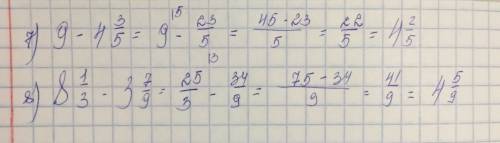 7) 9 - 4 3/5 = 9 ⁽⁵ - 23/5 = (45 - 23)/5 = 22/5 = 4 2/5
8) 8 1/3 - 3 7/9 = 25/3 ⁽³ - 34/9 = (75 - 34)/9 = 41/9 = 4 5/9